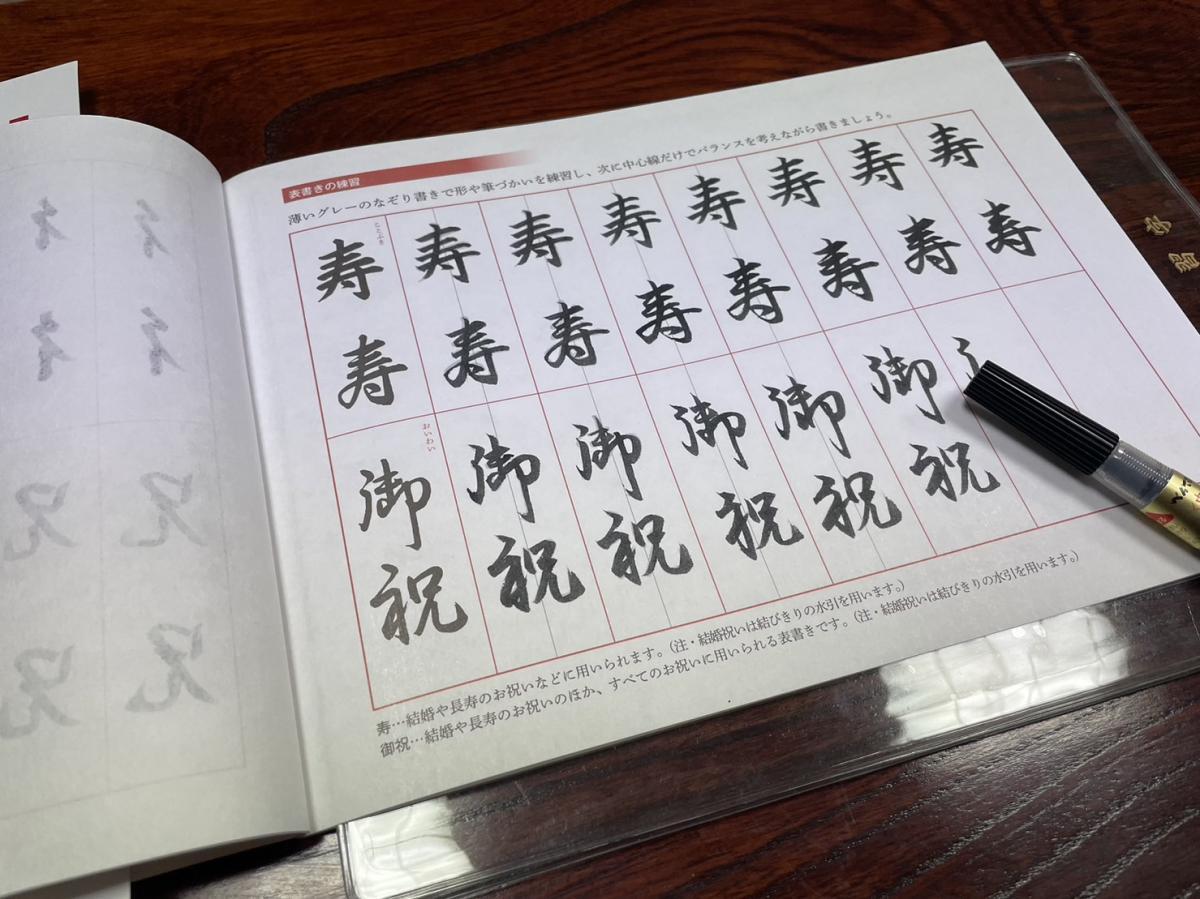 表書きの練習
薄いグレーのなぞり書きで形や筆づかいを練習し、次に中心線だけでバランスを考えながら書きましょう。
ことぶき
寿 寿 寿 寿 寿 寿 寿 寿
寿 寿 寿 寿 寿 寿 寿 寿
おいわい
御 御 御 御 御 御
祝 祝 祝 祝 祝 祝
寿…結婚や長寿のお祝いなどに用いられます。（注・結婚祝いは結びきりの水引を用います。）
御祝…結婚や長寿のお祝いのほか、すべてのお祝いに用いられる表書きです。（注・結婚祝いは結びきりの水引を用います。）